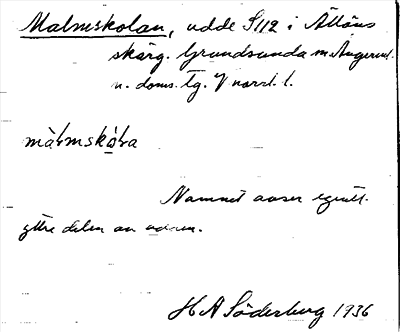 Malmskolan, udde S112 i Ållöns
skärg. Grundsunda sn. Ångerml.
n. doms. tg. V norrl. l.
màƚmskò̱ƚa
Namnet avser egentl.
yttre delen av udden.
H A Söderberg 1936